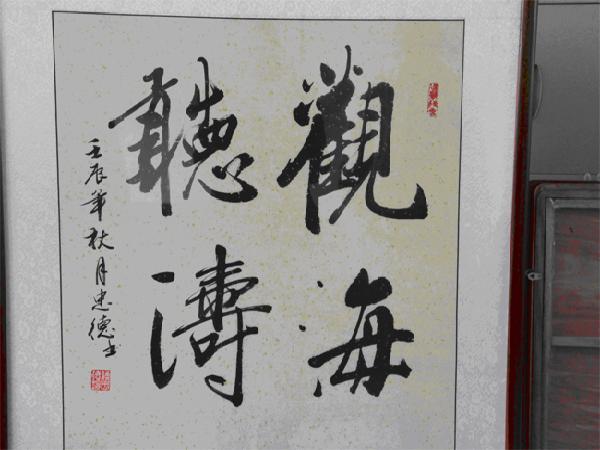 觀海
聽濤
壬辰年秋月忠德書